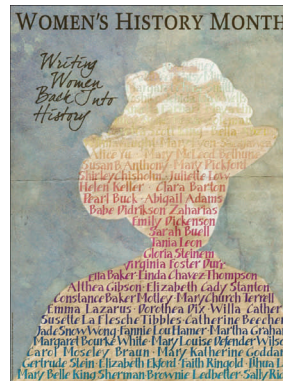 WOMEN'S HISTORY MONTH
Writing
Women
Back Into
History
Mary McLeod Bethune
Susan B Anthony · Mary Pickford
Shirley Chisholm · Juliette Low
Helen Keller · Clara Barton
Pearl Buck · Abigail Adams
Babe Didrikson Zaharias
Emily Dickenson
Sarah Buell
Tania Leon
Gloria Steinem
Virginia Foster Durr
Ella Baker · Linda Chavez Thompson
Althea Gibson · Elizabeth Cady Stanton
Constance Baker Motley · Mary Church Terrell
Emma Lazarus · Dorothea Dix · Willa Cather
Susette La Flesche Tibbles · Catherine Beecher
Jade Snow Wong · Fannie Lou Hamer · Martha Graham
Margaret Bourke White · Mary Louise Defender Wilson
Carol Moseley Braun · Mary Katherine Goddard
Gertrude Stein · Elizabeth Ekford · Faith Ringold ·
Mary Belle King Sherman · Brownie Ledbetter · Sally Ride